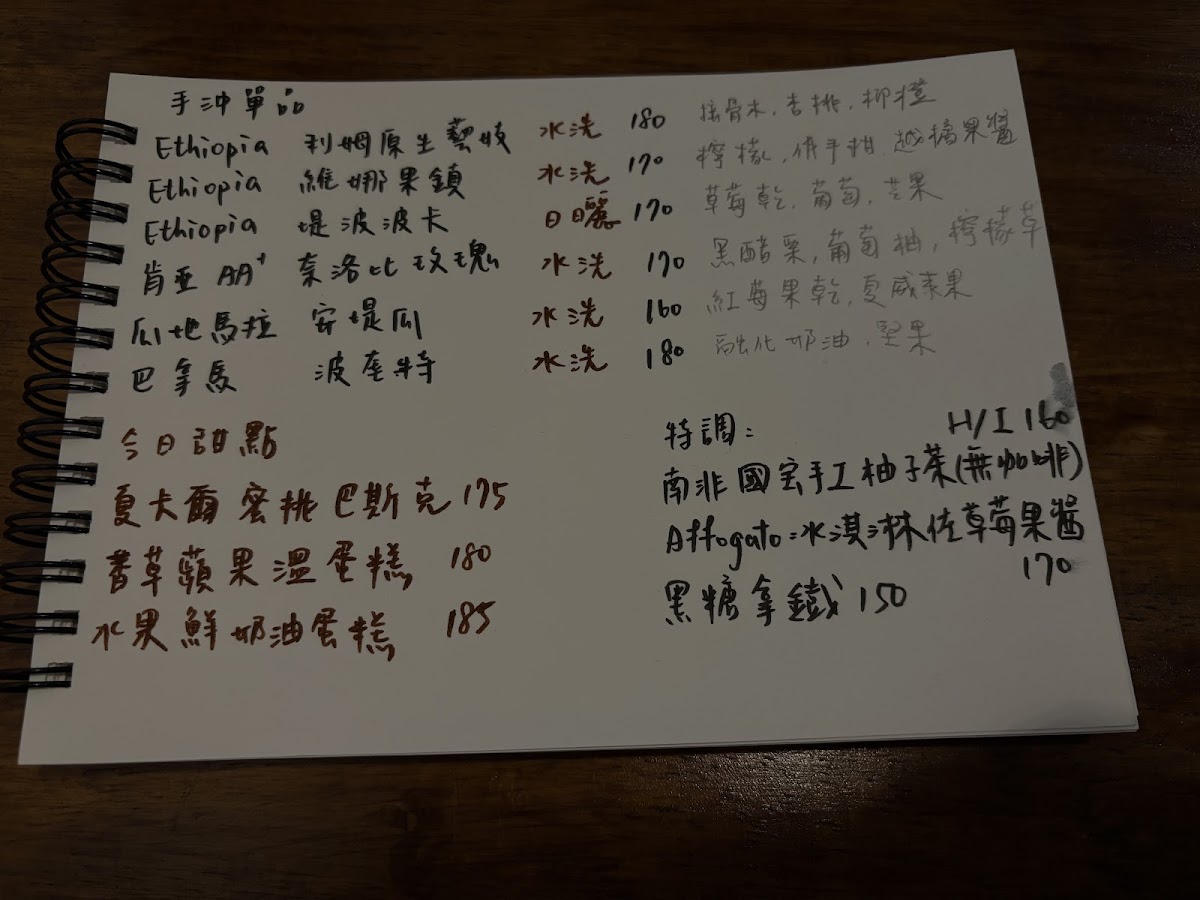 手沖單品
Ethiopia 利姆原生藝妓 水洗 180 接骨木, 杏桃, 柳橙
Ethiopia 維娜果鎮 水洗 170 檸檬, 佛手柑, 越橘果醬
Ethiopia 堤波波卡 日曬 170 草莓乾, 葡萄, 芒果
肯亞 AA+ 奈洛比玫瑰 水洗 170 黑醋栗, 葡萄柚, 檸檬草
瓜地馬拉 安堤瓜 水洗 160 紅莓果乾, 夏威夷果
巴拿馬 波奎特 水洗 180 融化奶油, 堅果
今日甜點
夏卡爾蜜桃巴斯克 175
香草蘋果溫蛋糕 180
水果鮮奶油蛋糕 185
特調: H/I 160
南非國宝手工柚子茶(無咖啡)
Affogato:冰淇淋佐草莓果醬
170
黑糖拿鐵 150